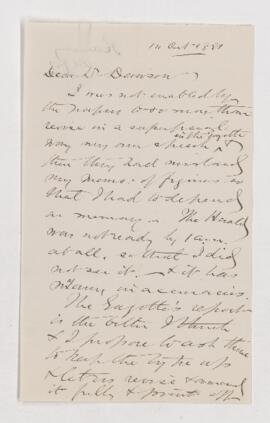 14 Oct 1881
Dear Dr Dawson
I was not enabled by
the papers to do more than
revise in a superficial
in the gazette
way my own speech &
then they had
my memo: of figures so
that I had to depend
on memory. The Herald
was not ready by 1 a.m.
at all, so that I did
not see it. & it has
many inaccuracies.
The Gazette's report
is the better I think
& I propose to ask them
to keep the type up
& let us revise & amend
it fully & print off